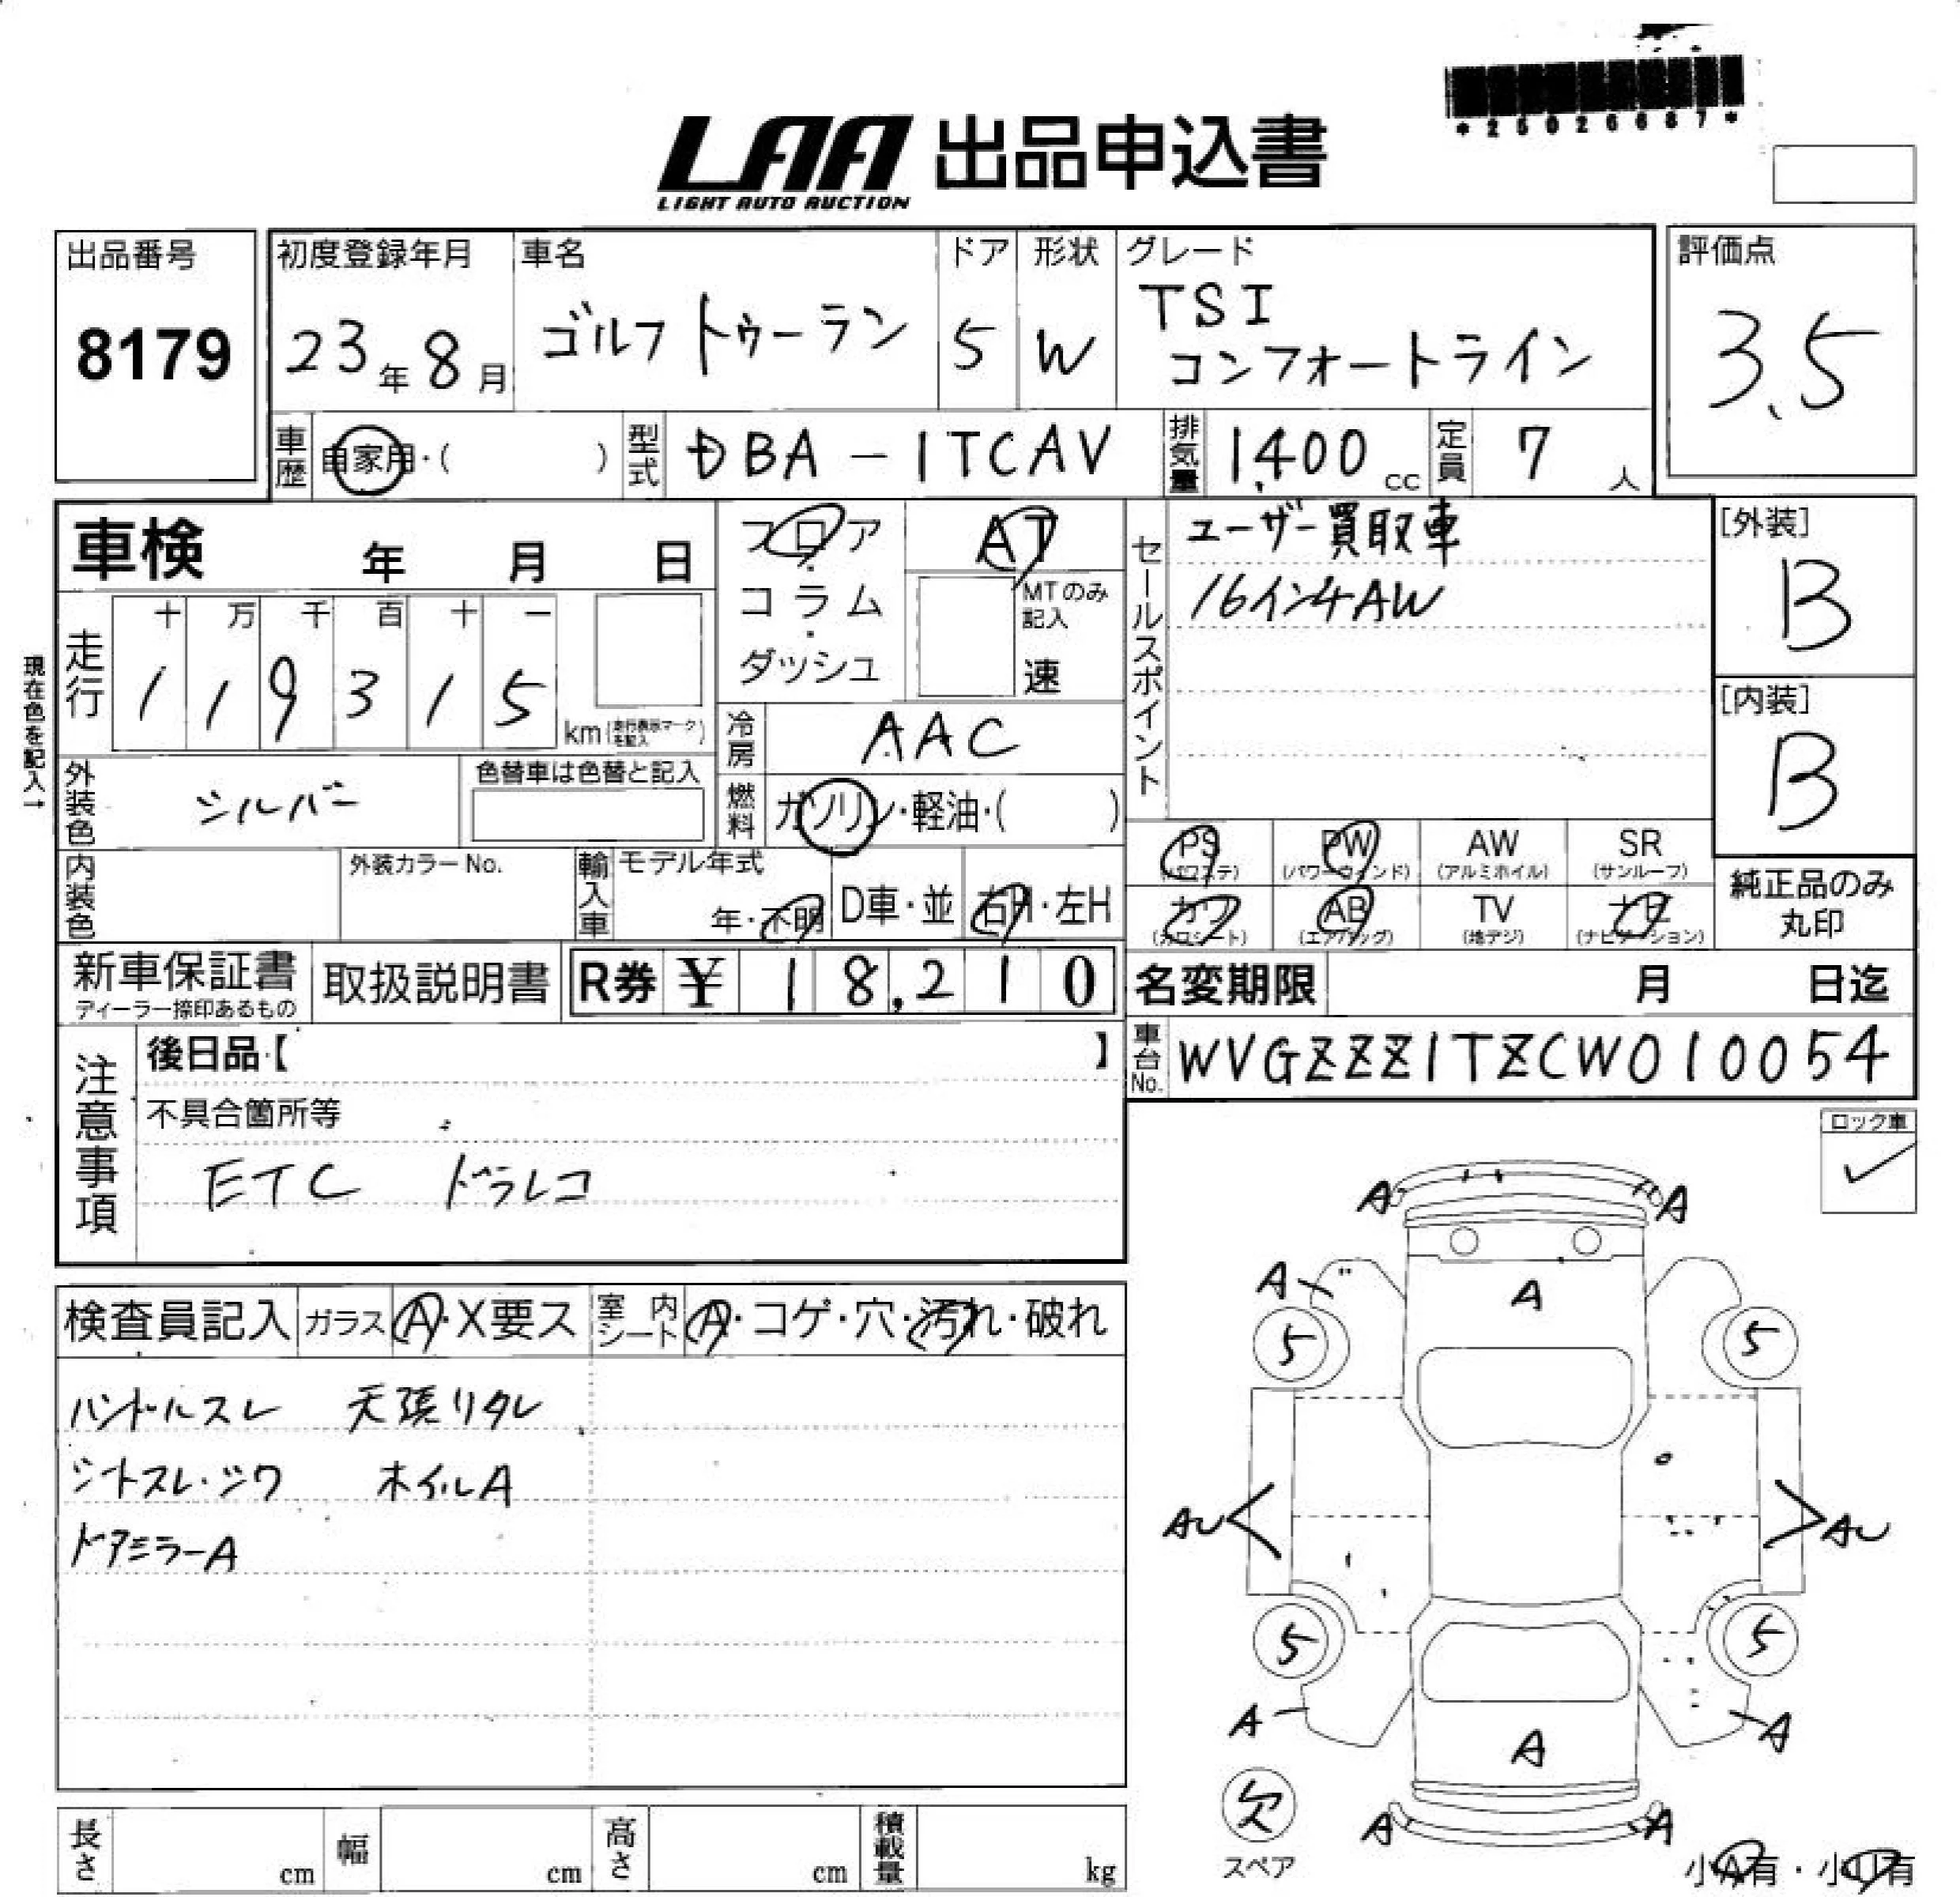 *25026687*
LAA 出品申込書
LIGHT AUTO AUCTION
出品番号
8179
初度登録年月
23年8月
車名
ゴルフ トゥーラン
ドア
5
形状
W
グレード
TSI
コンフォートライン
評価点
3.5
車歴
自家用・( )
型式
DBA-1TCAV
排気量
1,400 cc
定員
7 人
車検 年 月 日
フロア
コラム
ダッシュ
AT
MTのみ
記入
速
セールスポイント
ユーザー買取車
16インチAW
[外装]
B
[内装]
B
現在色を記入→
走行
十 万 千 百 十 一
1 1 9 3 1 5
km(走行表示マークを記入)
冷房
AAC
外装色
シルバー
色替車は色替と記入
燃料
ガソリン・軽油・( )
PS
(パワステ)
PW
(パワーウィンド)
AW
(アルミホイル)
SR
(サンルーフ)
カワ
(カワシート)
AB
(エアバッグ)
TV
(地デジ)
ナビ
(ナビゲーション)
純正品のみ
丸印
内装色
外装カラーNo.
輸入車
モデル年式
年・不明
D車・並
右H・左H
新車保証書
ディーラー捺印あるもの
取扱説明書
R券 ¥ 18,210
名変期限 月 日迄
車台No.
WVGZZZ1TZCW010054
注意事項
後日品【 】
不具合箇所等
ETC ドラレコ
ロック車
✓
検査員記入
ガラス
A・X要ス
室内シート
A・コゲ・穴・汚れ・破れ
ハンドルスレ 天張リタレ
シートスレ・シワ ホイルA
ドアミラーA
A A
A A
5 5
AU AU
5 5
A A
A
A A
欠
スペア
小A有・小U有
長さ cm
幅 cm
高さ cm
積載量 kg